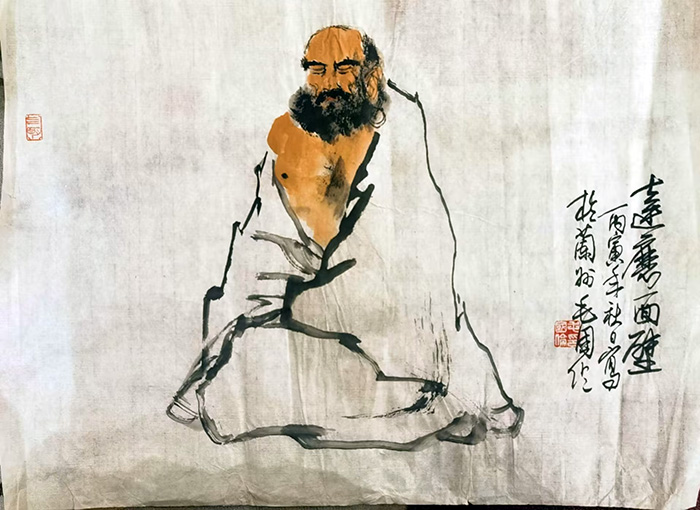 達磨面壁
丙寅年秋日寫
於蘭州毛國倫